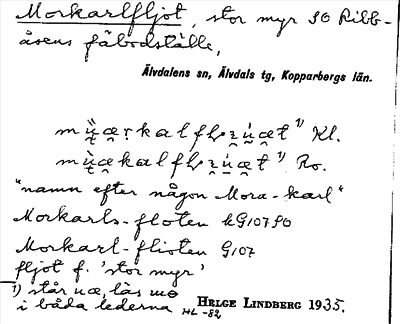 Morkarlfljot, stor myr SO Ribb-
åsens fäbodställe,
Älvdalens sn, Älvdals tg, Kopparbergs län.
Kl.
Ro.
"namn efter någon Mora-karl"
Morkarls-floten kG10750
Morkarl-flisten G107
fljot f. 'stor myr'
1) står uœ, läs uo
i båda lederna HL -82
HELGE LINDBERG 1935.